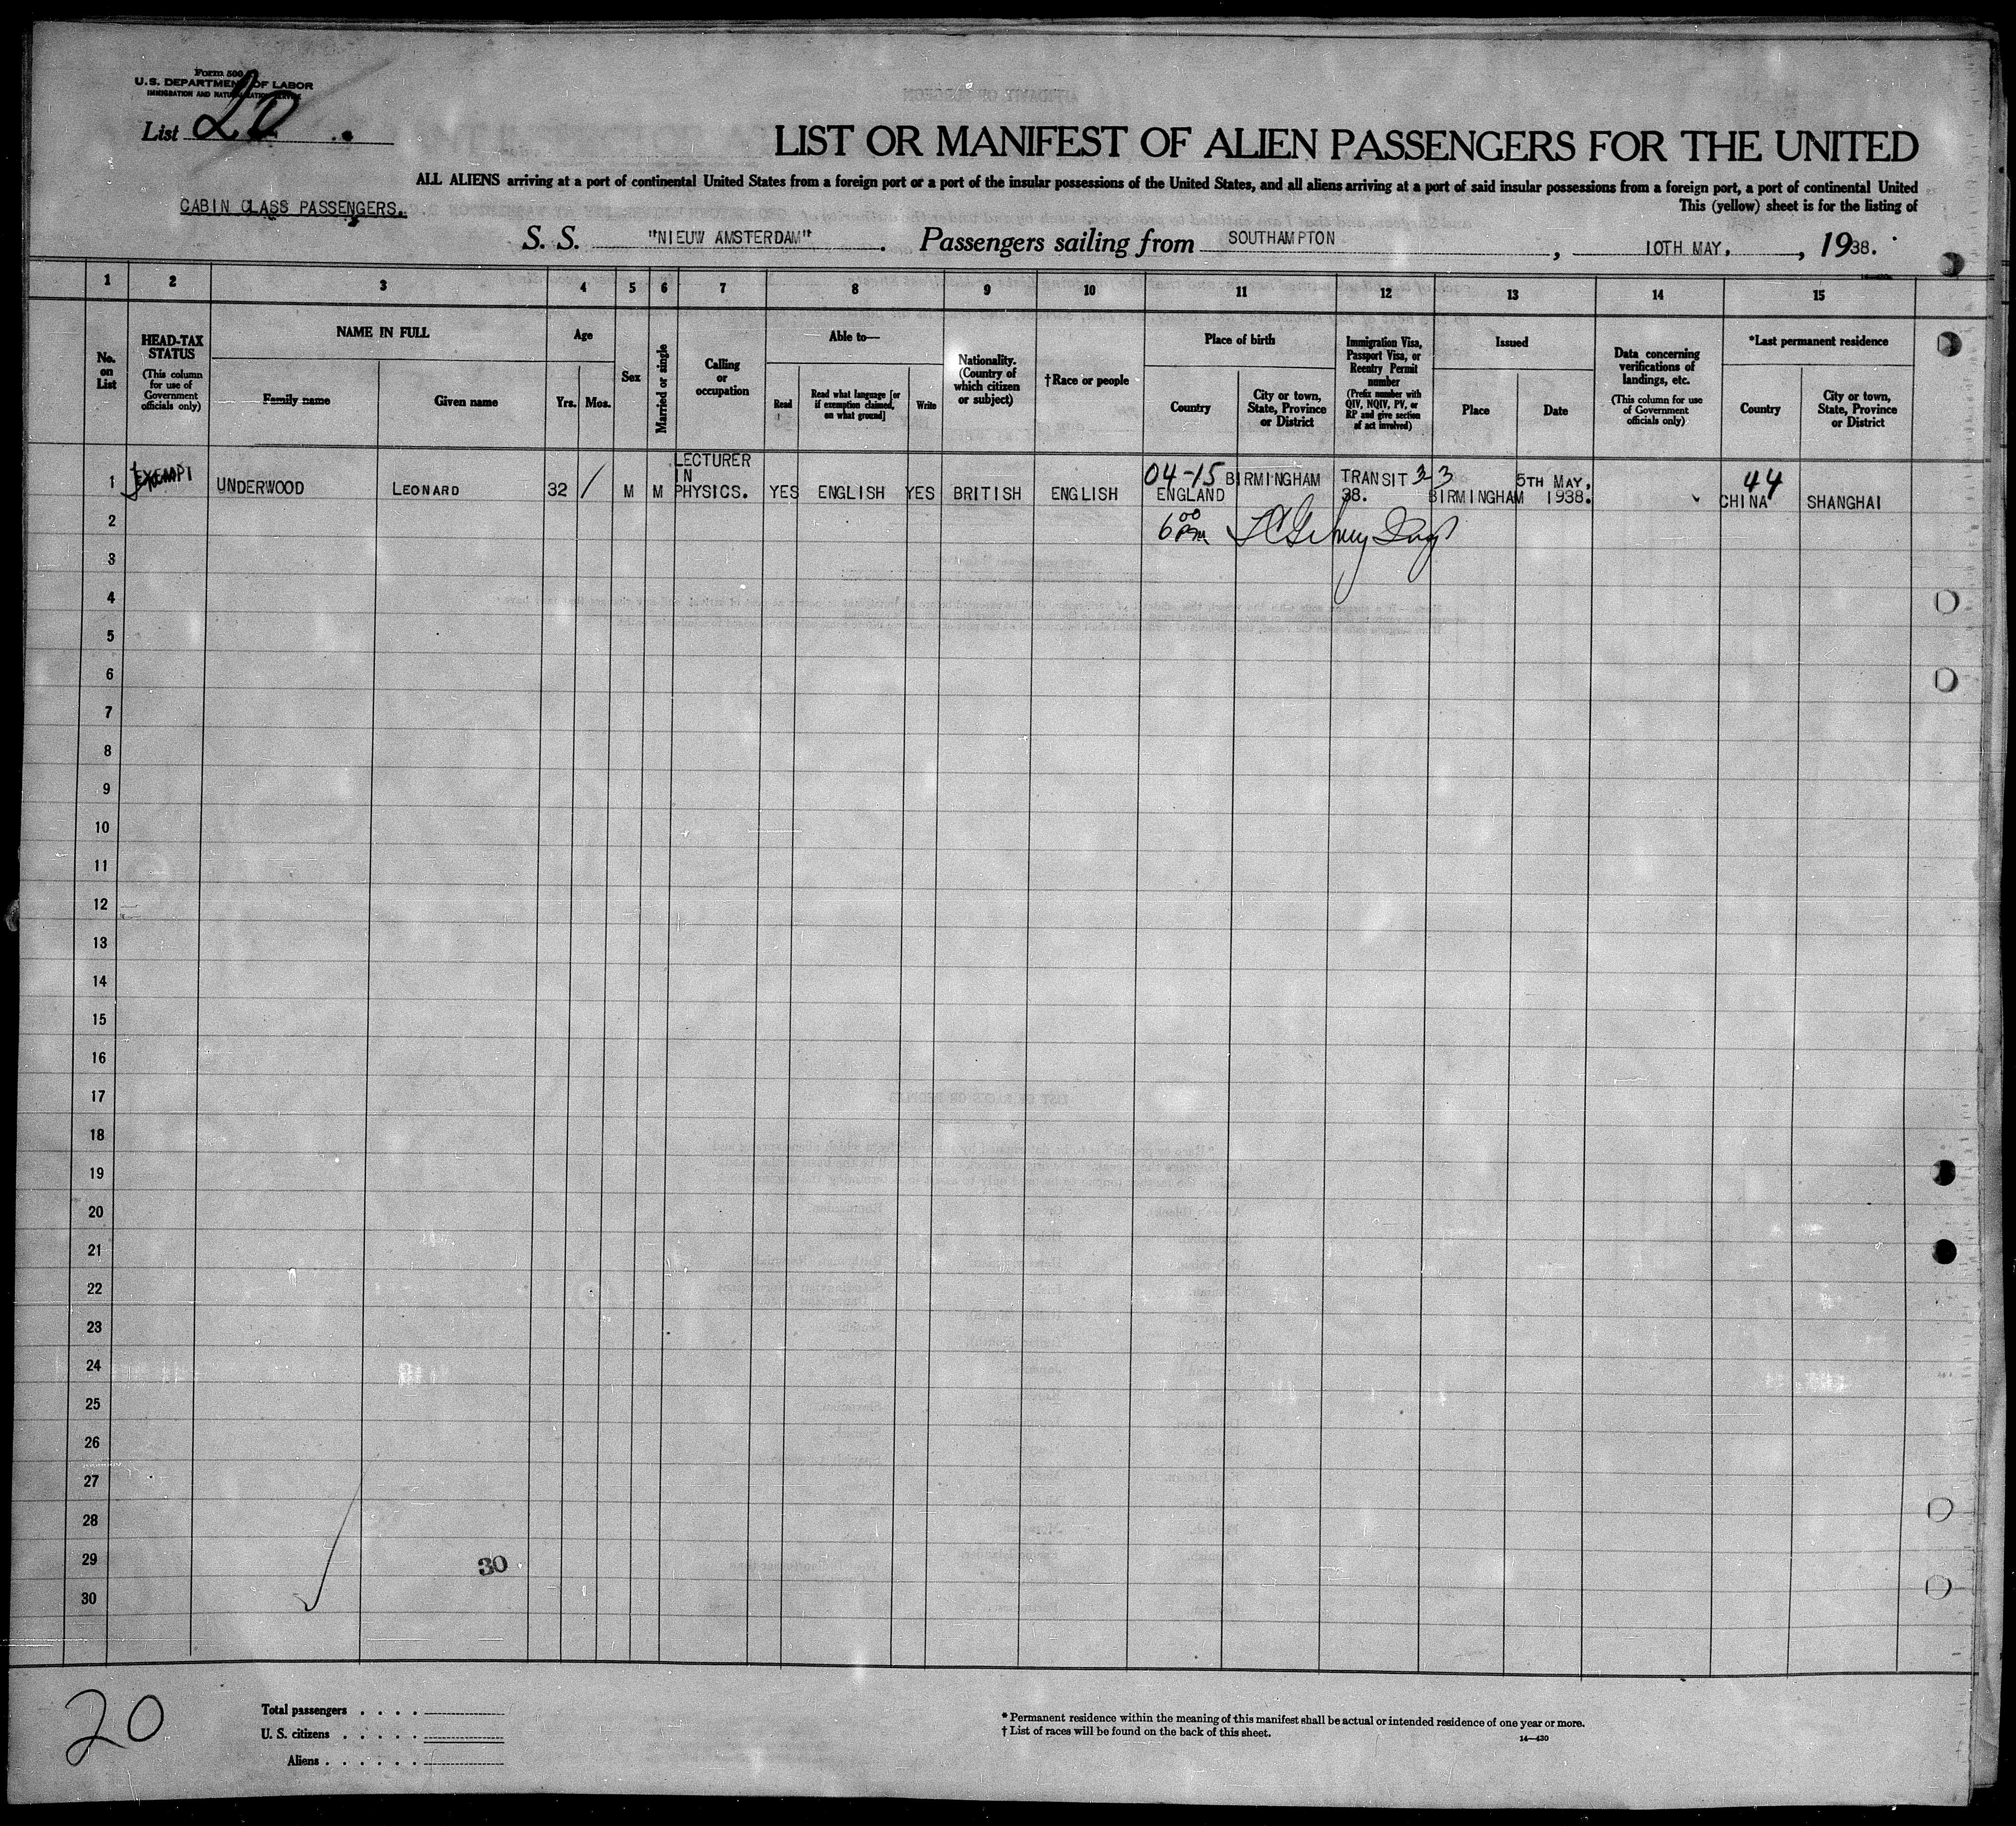 Form 500
U.S. DEPARTMENT OF LABOR
IMMIGRATION AND NATURALIZATION SERVICE
List 20
LIST OR MANIFEST OF ALIEN PASSENGERS FOR THE UNITED
ALL ALIENS arriving at a port of continental United States from a foreign port or a port of the insular possessions of the United States, and all aliens arriving at a port of said insular possessions from a foreign port, a port of continental United
CABIN CLASS PASSENGERS.
This (yellow) sheet is for the listing of
S. S. "NIEUW AMSTERDAM" Passengers sailing from SOUTHAMPTON, 10TH MAY, 1938.
1 2 3 4 5 6 7 8 9 10 11 12 13 14 15
No. on List
HEAD-TAX STATUS (This column for use of Government officials only)
NAME IN FULL
Family name
Given name
Age
Yrs. Mos.
Sex
Married or single
Calling or occupation
Able to—
Read
Read what language [or if exemption claimed, on what ground]
Write
Nationality. (Country of which citizen or subject)
†Race or people
Place of birth
Country
City or town, State, Province or District
Immigration Visa, Passport Visa, or Reentry Permit number (Prefix number with QIV, NQIV, PV, or RP and give section of act involved)
Issued
Place
Date
Data concerning verifications of landings, etc. (This column for use of Government officials only)
*Last permanent residence
Country
City or town, State, Province or District
1 EXEMPT UNDERWOOD LEONARD 32 M M LECTURER IN PHYSICS. YES ENGLISH YES BRITISH ENGLISH 04-15 ENGLAND BIRMINGHAM TRANSIT 33 38. BIRMINGHAM 5TH MAY, 1938. 44 CHINA SHANGHAI
2 6 00 PM
3
4
5
6
7
8
9
10
11
12
13
14
15
16
17
18
19
20
21
22
23
24
25
26
27
28
29 30
30
20
Total passengers
U. S. citizens
Aliens
* Permanent residence within the meaning of this manifest shall be actual or intended residence of one year or more.
† List of races will be found on the back of this sheet.
14—430